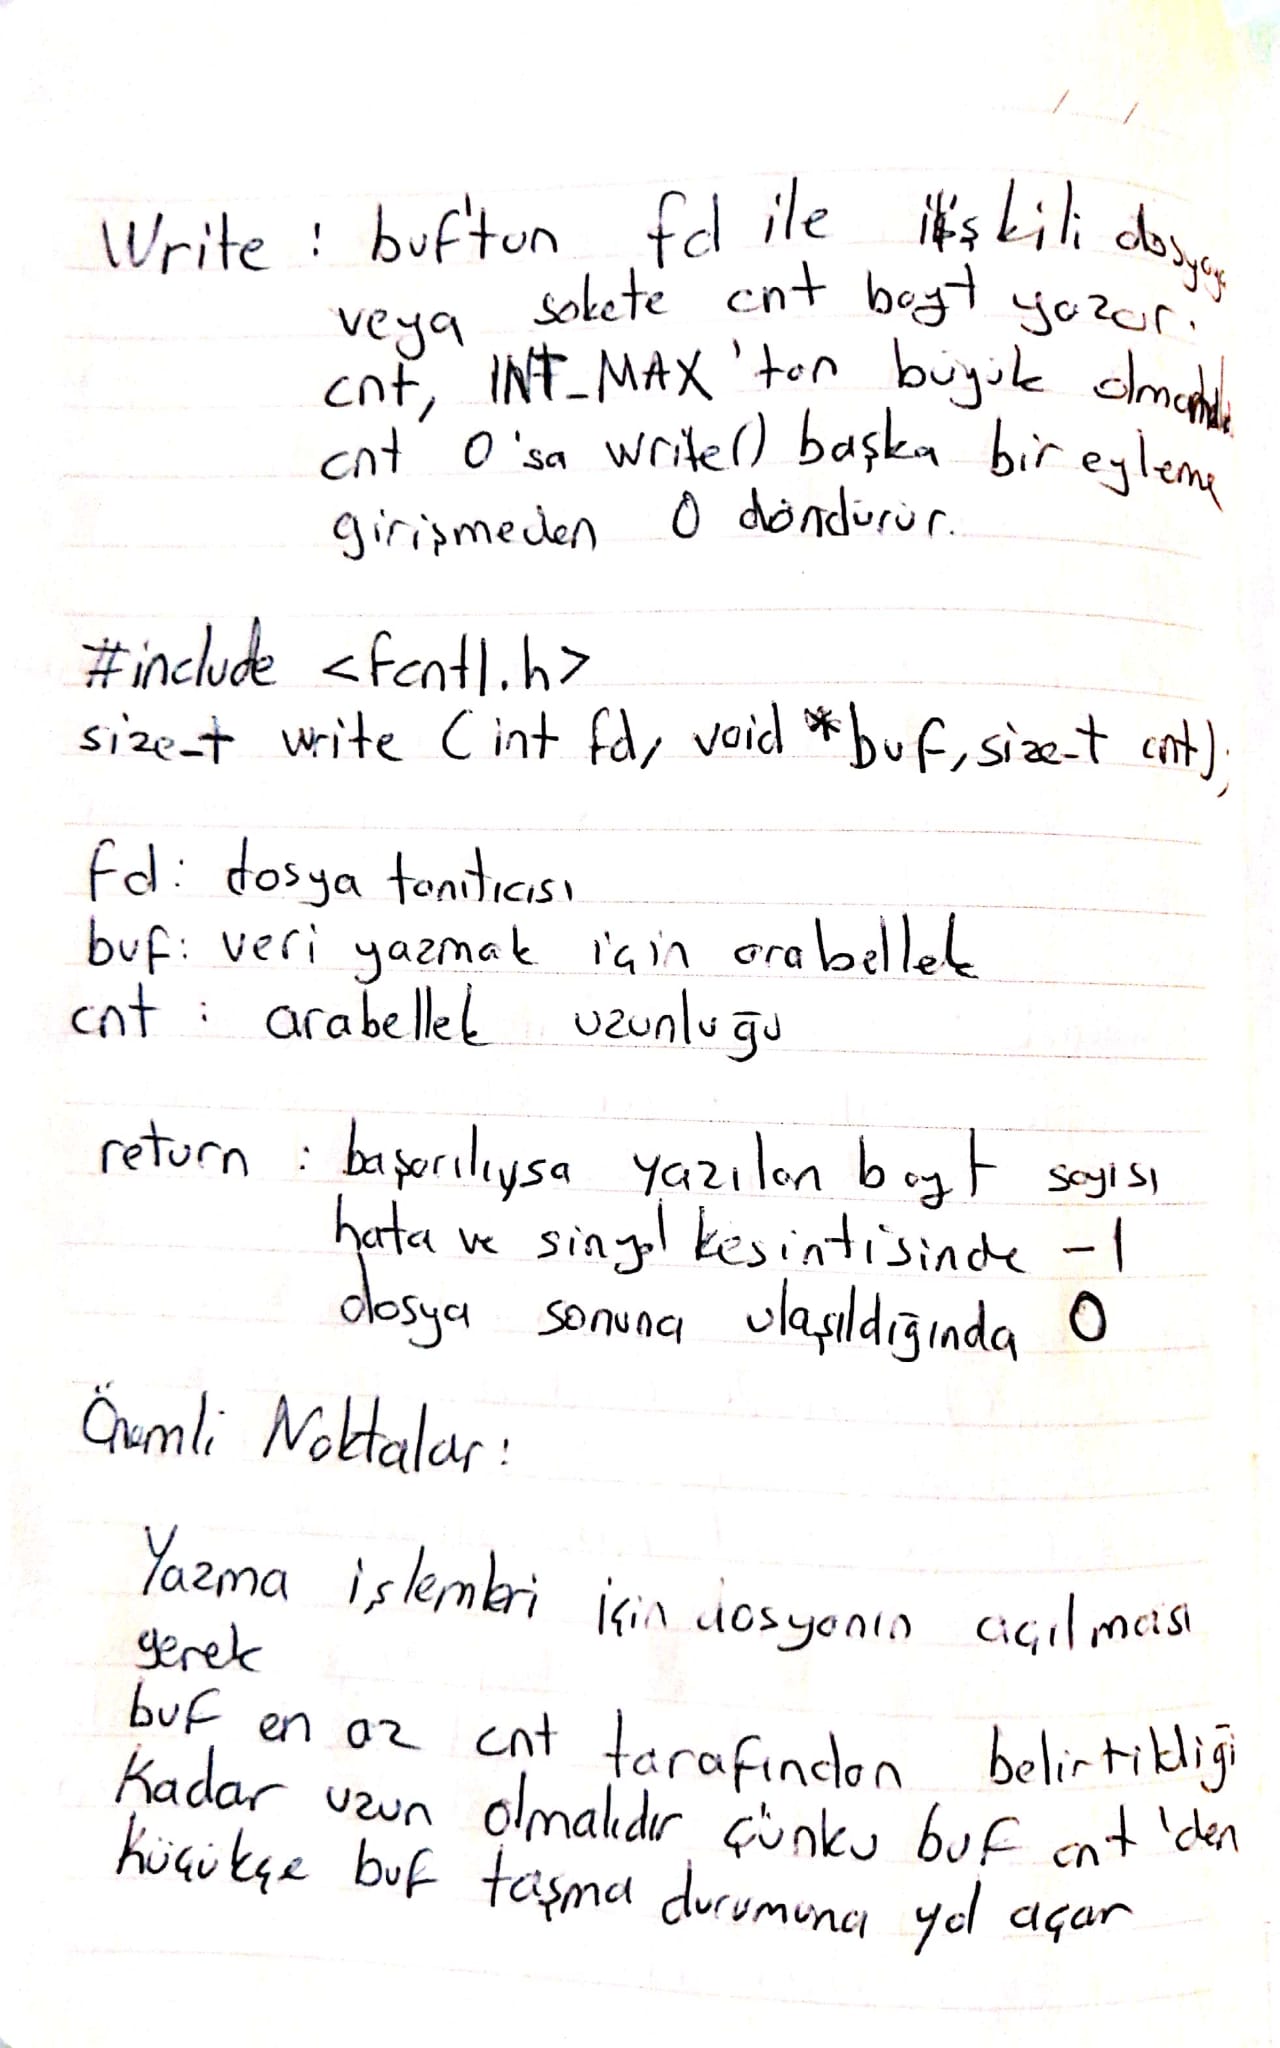 Write : buf'tan fd ile ilişkili dosyaya
veya sokete cnt bayt yazar.
cnt, INT_MAX 'tan büyük olmamalıdır
cnt 0'sa write() başka bir eyleme
girişmeden 0 döndürür.
#include <fcntl.h>
size_t write (int fd, void *buf, size_t cnt);
fd: dosya tanıtıcısı
buf: veri yazmak için arabellek
cnt : arabellek uzunluğu
return : başarılıysa yazılan bayt sayısı
hata ve sinyal kesintisinde -1
dosya sonuna ulaşıldığında 0
Önemli Noktalar:
Yazma işlemleri için dosyanın açılması
gerek
buf en az cnt tarafından belirtikliği
kadar uzun olmalıdır çünkü buf cnt'den
küçükçe buf taşma durumuna yol açar